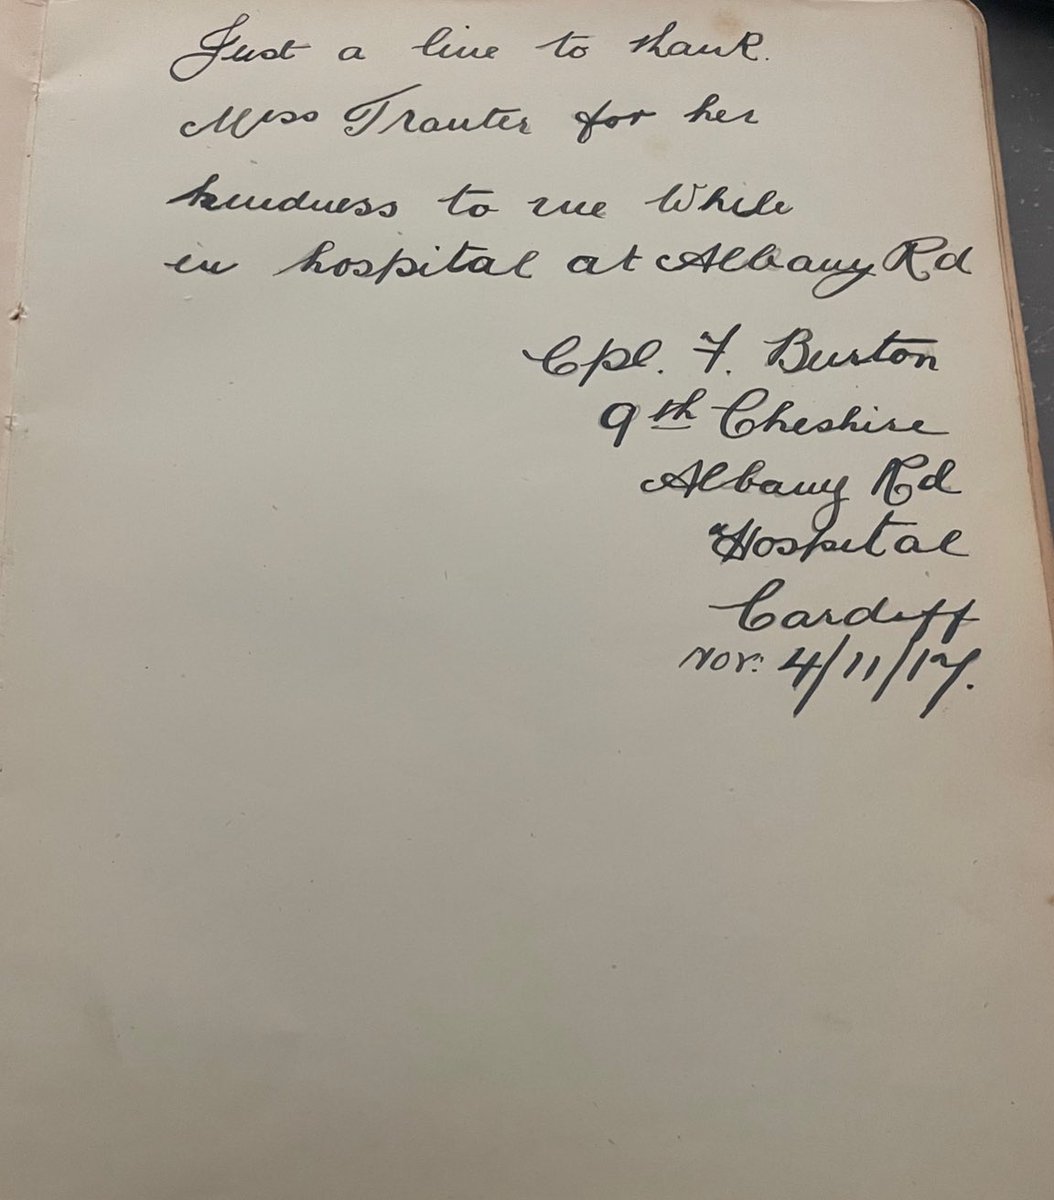 Just a line to thank.
Miss Trauter for her
kindness to me While
in hospital at Albany Rd
Cpl. F. Burton
9th Cheshire
Albany Rd
Hospital
Cardiff
Nov: 4/11/17.